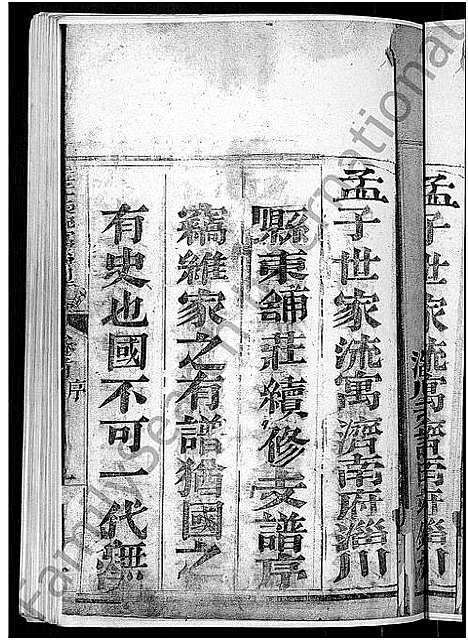 孟子世家流寓濟南府淄川
縣東鋪莊續修支譜序
竊維家之有譜猶國之
有史也國不可一代無
序
Familysearch International